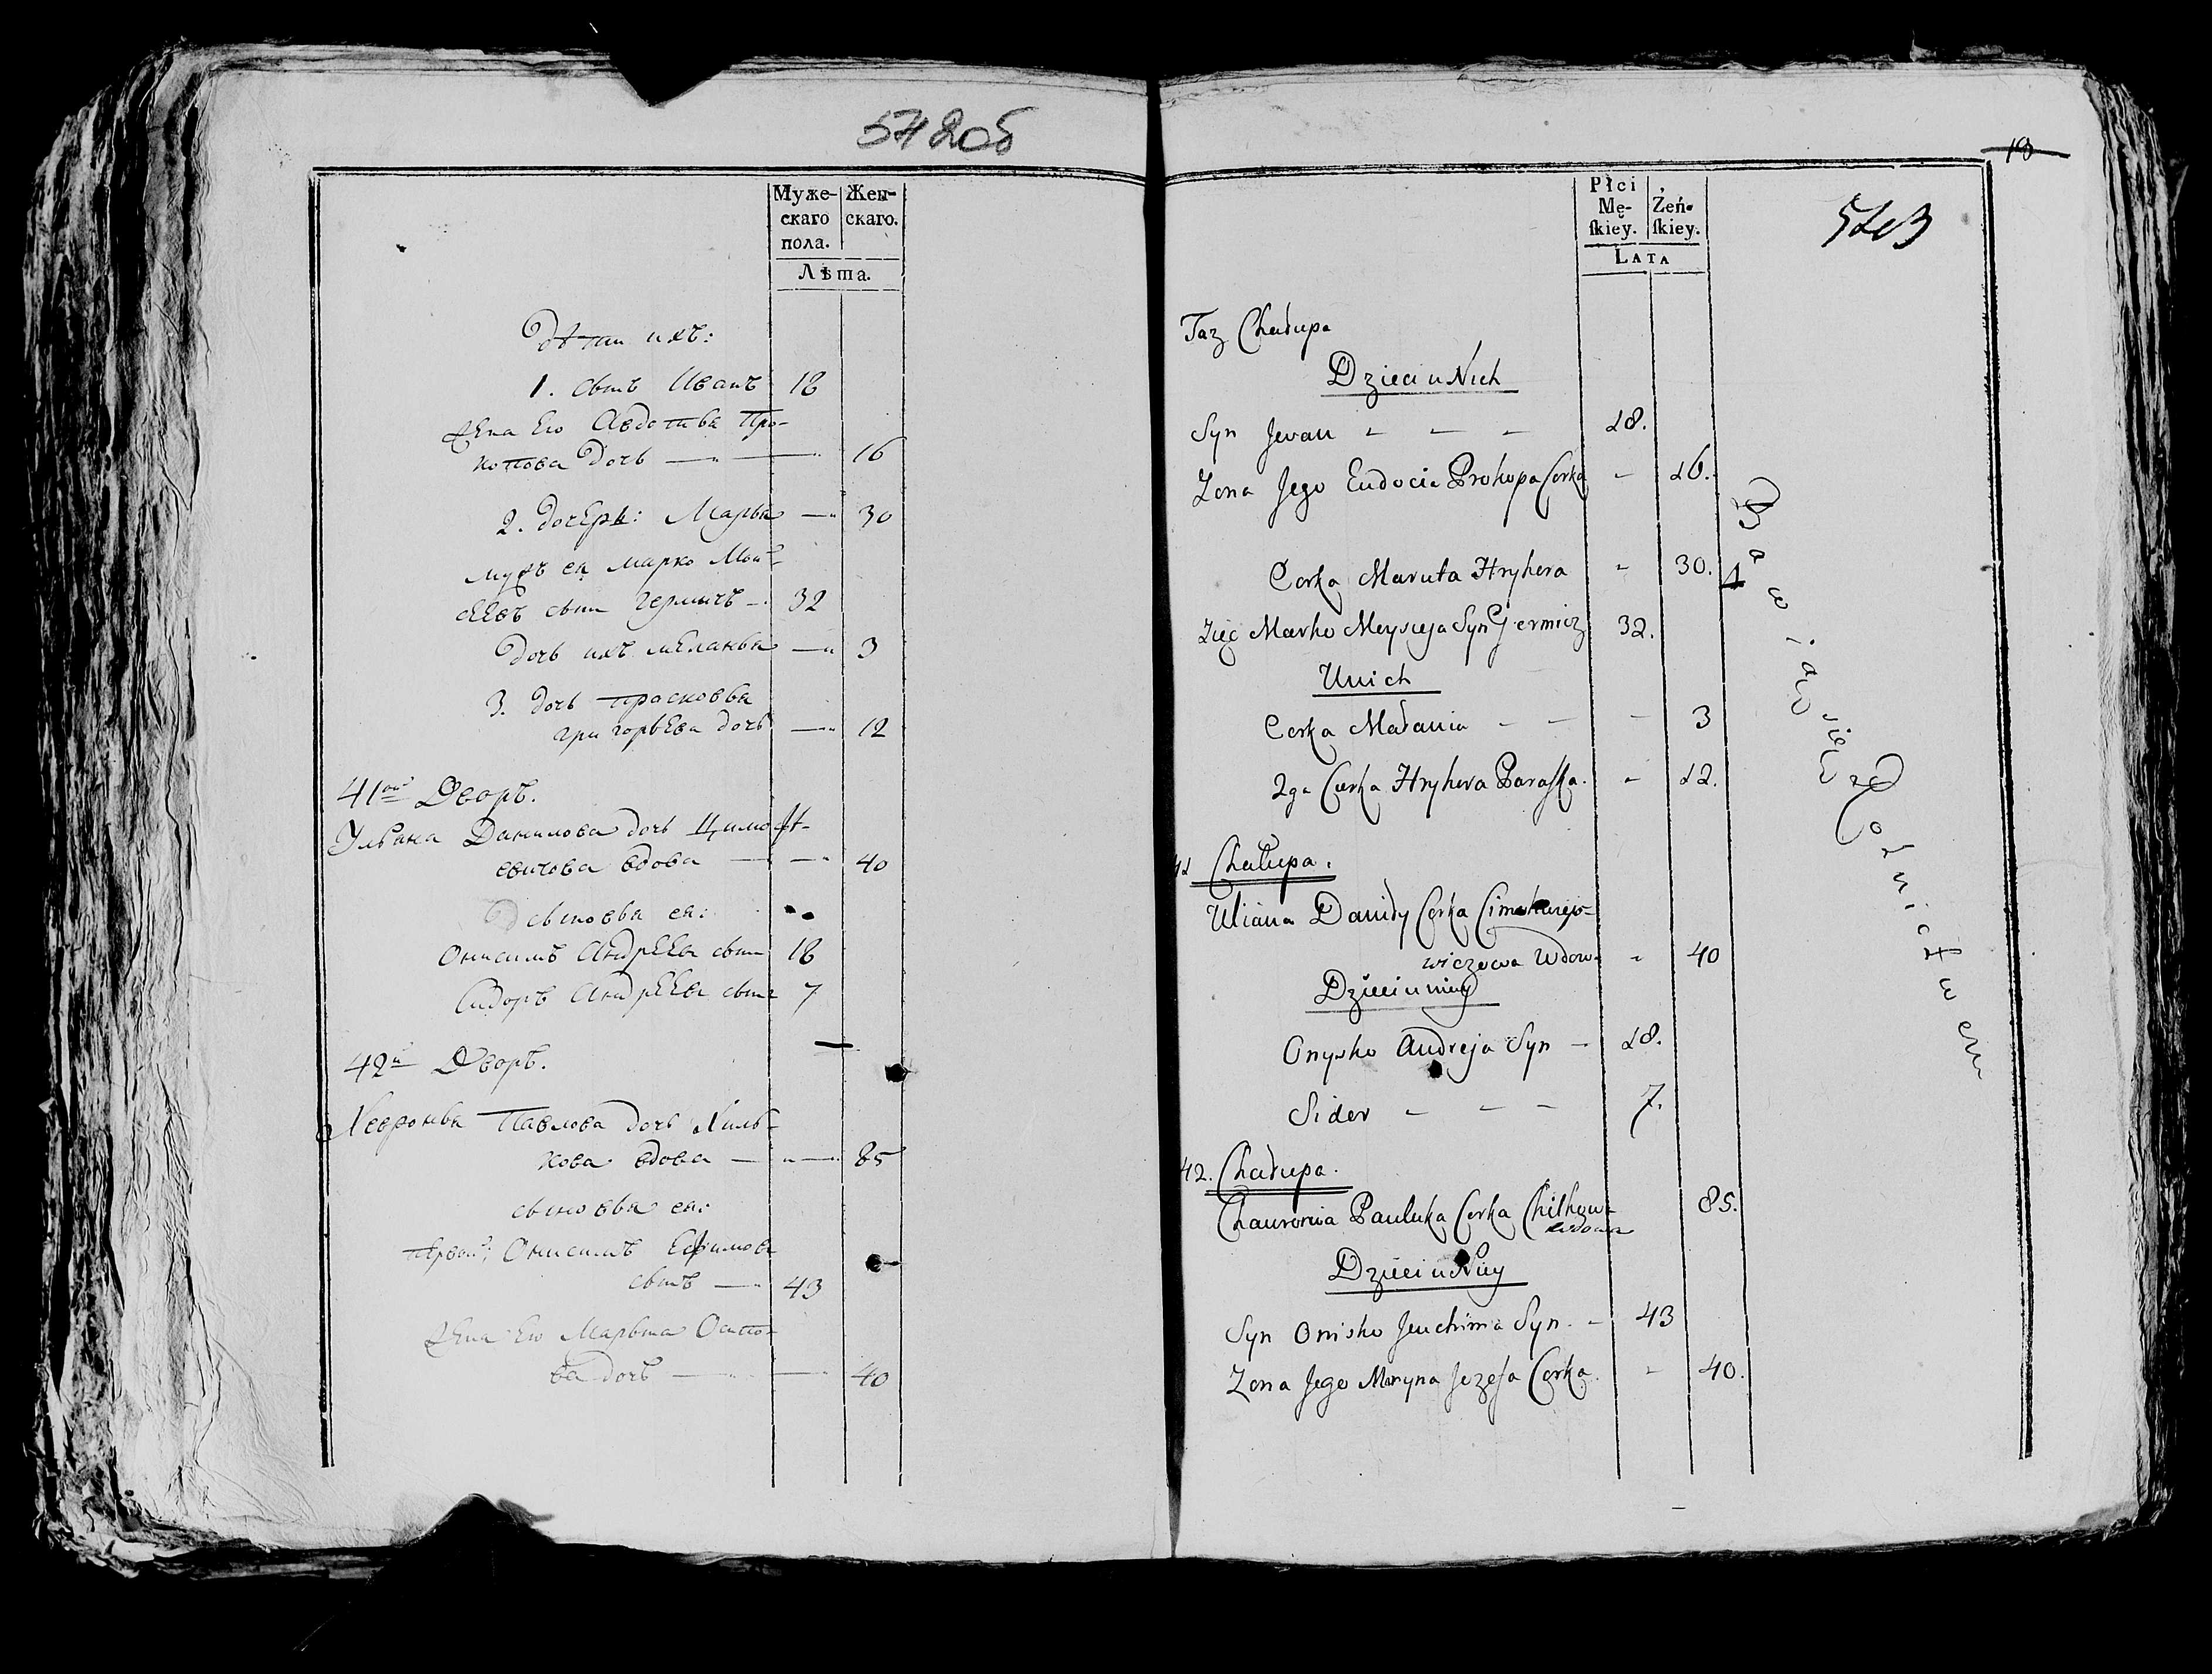 542об
Муже-
скаго
пола.
Жен-
скаго.
Лѣта.
Дѣти ихъ:
1. сынъ Иванъ 18
Жена Его Авдотья Про-
копова дочь — 16
2. дочерь: Марья — 30
мужъ ея Марко Мои-
сеевъ сынъ Гермычъ — 32
Дочь ихъ меланья — 3
3. дочь прасковья
григорьева дочь — 12
41ой Дворъ.
Ульяна Данилова дочь
евичова вдова — 40
сыновья ея:
Онисимъ Андрѣевъ сынъ 18
Сидоръ Андрѣевъ сынъ 7
42й Дворъ.
Хевронья Павлова дочь Хиль-
кова вдова — 85
сыновья ея:
первой: Онисимъ Ефимовъ
сынъ — 43
Жена Его Марьяна Осипо-
ва дочь — 40
10
543
Płci
Mę-
ſkiey.
Żeń-
ſkiey.
LATA
Taz Chałupa
Dzieci u Nich
Syn Jewan - - - 18.
Zona Jego Eudocia Prokopa Corka - 16.
Corka Maruta Hryhora - 30.
Zięć Marko Moysieja Syn Germicz 32.
U nich
Corka Małania - - - 3
2ga Corka Hryhora Paraska. - 12.
41 Chałupa.
Uliana Daniły Corka
wiczowa Wdowa - 40
Dzieci u niey
Onysko Andreja Syn - 18.
Sidor - - - 7.
42. Chałupa.
Chauronia Pauluka Corka Chilkow-
wdowa 85.
Dzieci u Niey
Syn Onisko Jeuchima Syn. - 43
Zona Jego Maryna Jozefa Corka. - 40.
Bawią się Rolnictwem